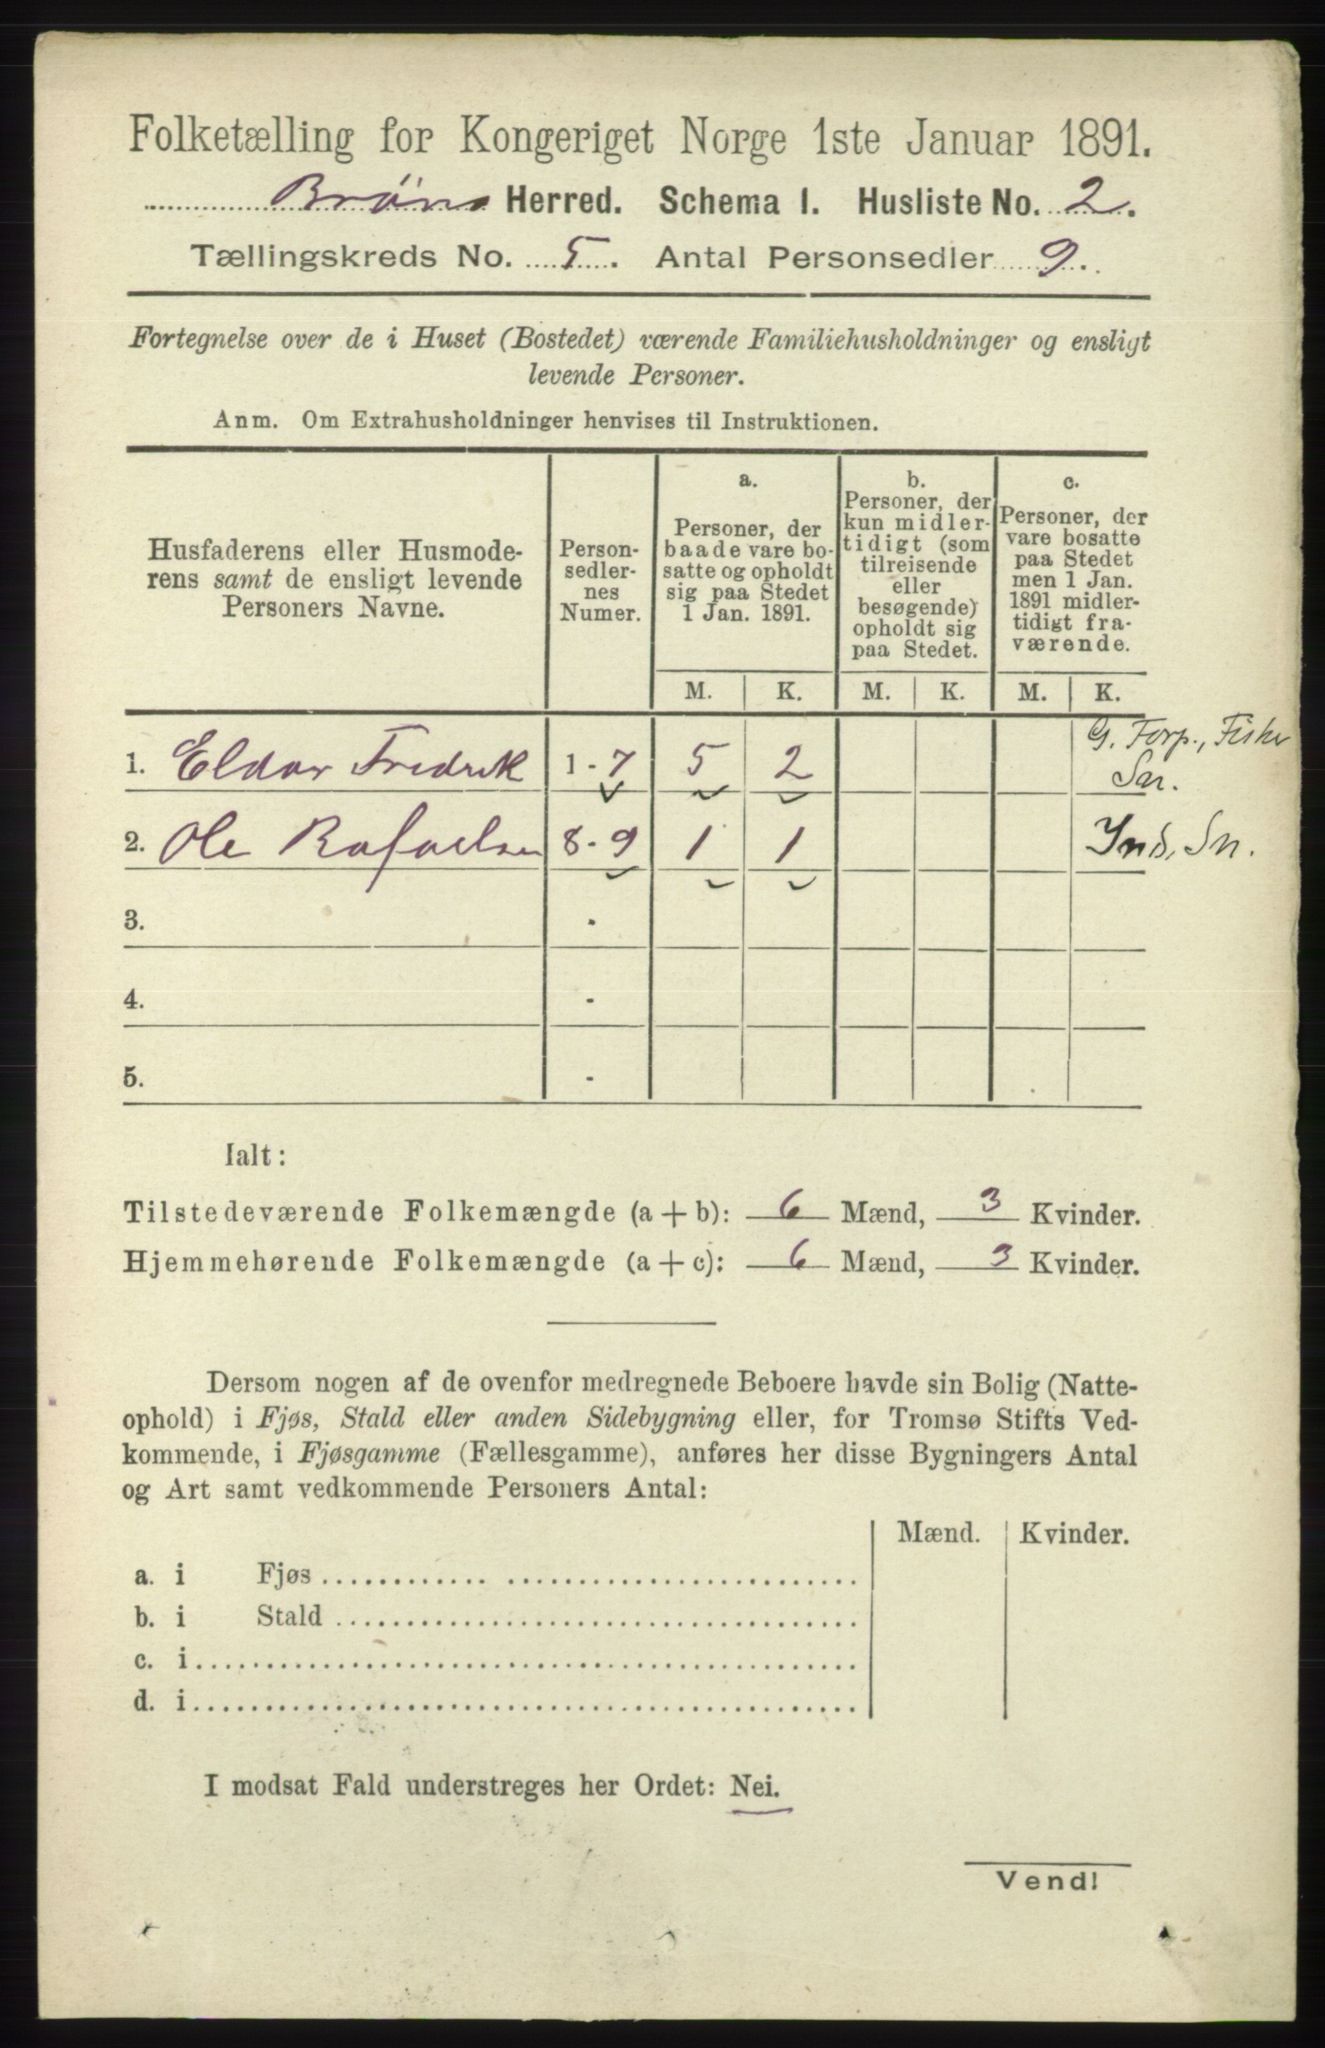 Folketælling for Kongeriget Norge 1ste Januar 1891.
Brønø Herred. Schema I. Husliste No. 2.
Tællingskreds No. 5. Antal Personsedler 9.
Fortegnelse over de i Huset (Bostedet) værende Familiehusholdninger og ensligt
levende Personer.
Anm. Om Extrahusholdninger henvises til Instruktionen.
Husfaderens eller Husmode-
rens samt de ensligt levende
Personers Navne.
Person-
sedler-
nes
Numer.
a.
Personer, der
baade vare bo-
satte og opholdt
sig paa Stedet
1 Jan. 1891.
b.
Personer, der
kun midler-
tidigt (som
tilreisende
eller
besøgende)
opholdt sig
paa Stedet.
c.
Personer, der
vare bosatte
paa Stedet
men 1 Jan.
1891 midler-
tidigt fra-
værende.
M. K. M. K. M. K.
1. Eldar Fredrik 1 - 7 5 2 G. Forp., Fisker
2. Ole Rafaelsen 8 - 9 1 1 Ind. Sn.
3. -
4. -
5. -
Ialt:
Tilstedeværende Folkemængde (a + b): 6 Mænd, 3 Kvinder.
Hjemmehørende Folkemængde (a + c): 6 Mænd, 3 Kvinder.
Dersom nogen af de ovenfor medregnede Beboere havde sin Bolig (Natte-
ophold) i Fjøs, Stald eller anden Sidebygning eller, for Tromsø Stifts Ved-
kommende, i Fjøsgamme (Fællesgamme), anføres her disse Bygningers Antal
og Art samt vedkommende Personers Antal:
Mænd. Kvinder.
a. i Fjøs
b. i Stald
c. i
d. i
I modsat Fald understreges her Ordet: Nei.
Vend!